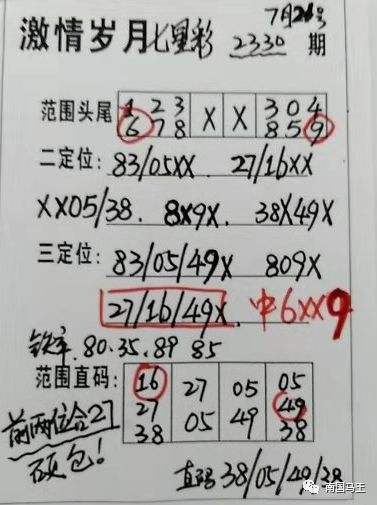 7月26号
激情岁月七星彩 2330 期
范围头尾 1 2 3 X X 3 0 4
6 7 8 8 5 9
二定位: 83/05XX. 27/16XX
XX05/38. 8X9X. 38X49X
三定位: 83/05/49X 809X
27/16/49X. 中6XX9
铁率. 80.35.89 85
范围直码: 16 27 05 05
27 05 49 49
38 38
前两位合27
硬包!
直码 38/05/49/38
南国马王